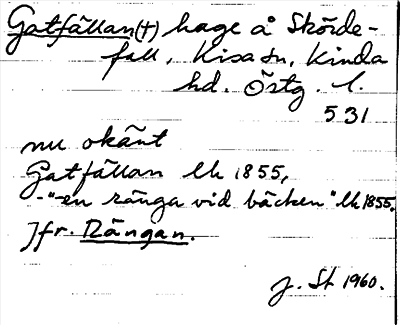 Gatfällan(†) hage å Skörde-
fall, Kisa sn, Kinda
hd. Östg. l.
531
nu okänt
Gatfällan lk 1855,
-"-en rånga vid bäcken" lk 1855.
Jfr. Rångan.
J. St 1960.